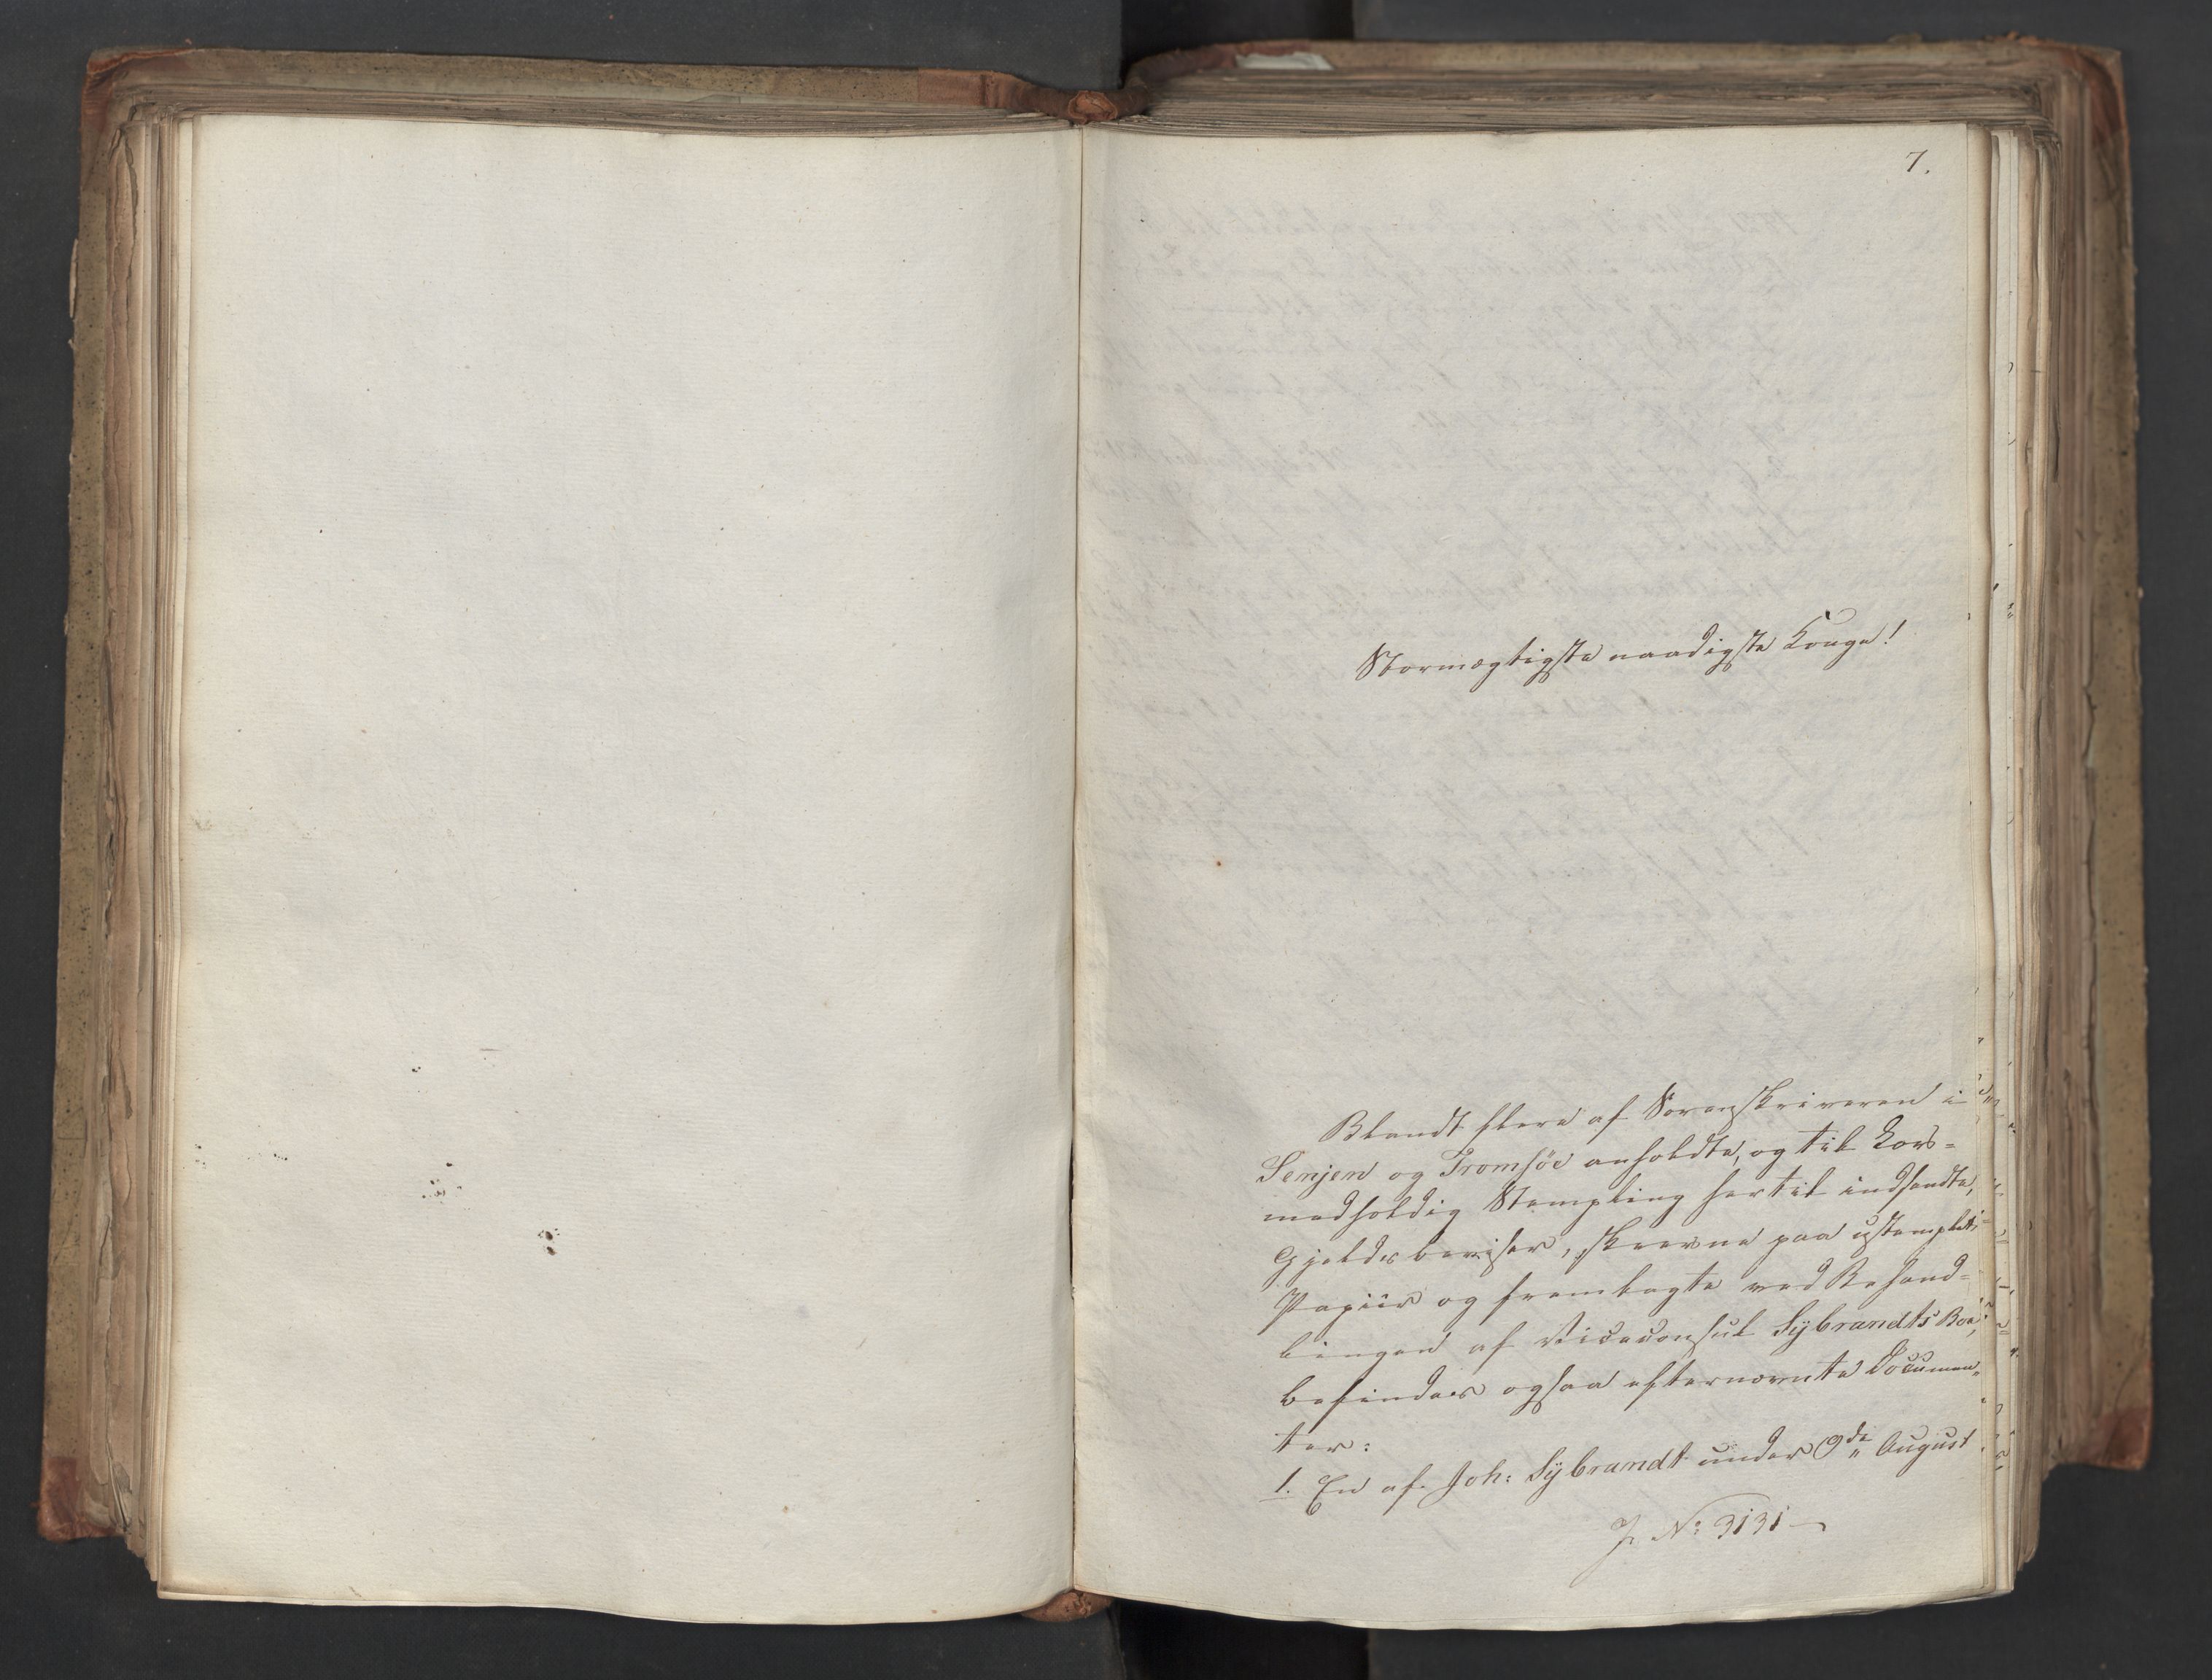 7.
Stormægtigste naadigste Konge!
Blandt flere af Sorenskriveren i
Senjen og Tromsöe anholdte, og til Lov-
medholdig Stempling hertil indsendte,
Gjeldsbeviser, skrevne paa ustemplet
Papiir og fremlagte ved Behand-
lingen af Viceconsul Sÿbrandts Boe,
befindes ogsaa efternævnte Documen-
ter:
1. En af Joh: Sÿbrandt under 9de August
J. No: 3131